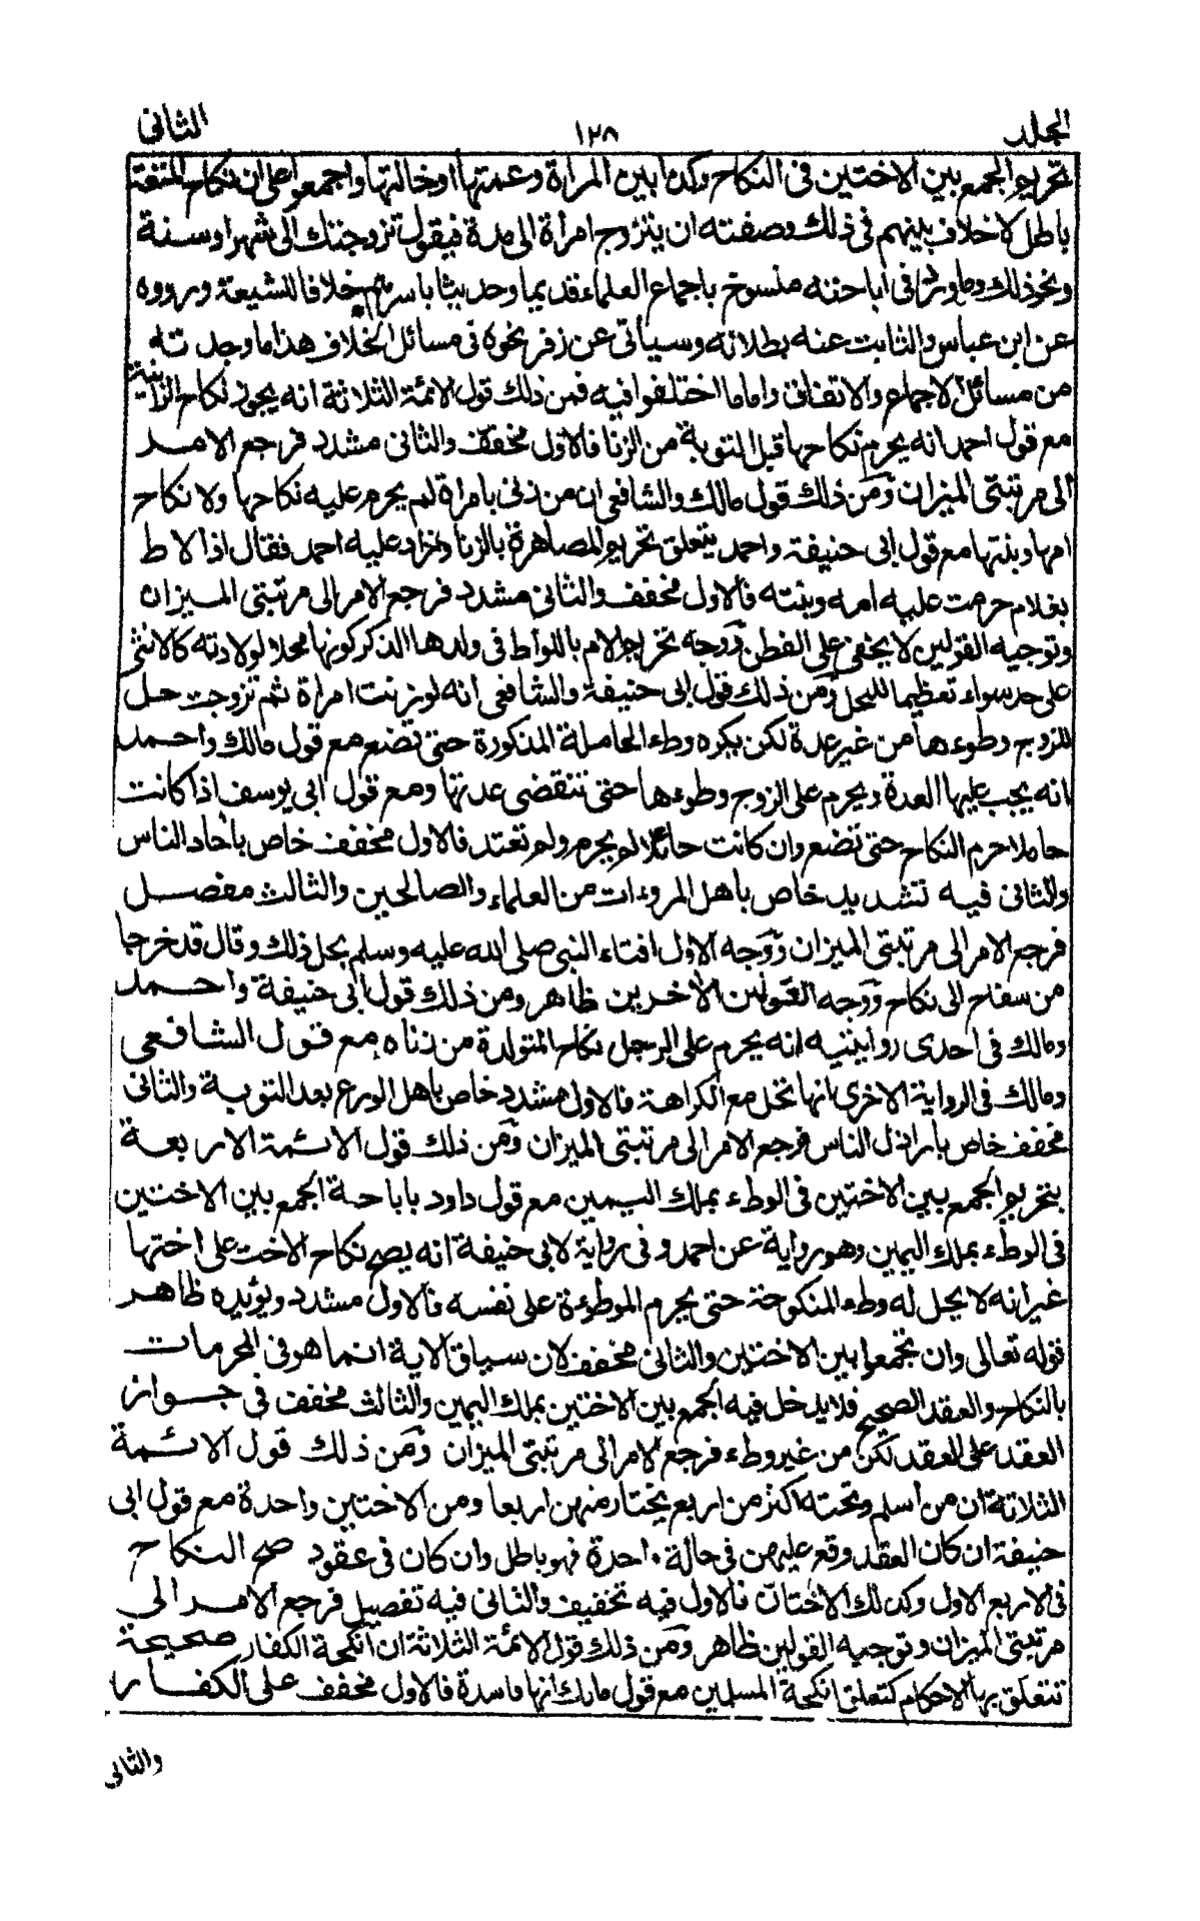 المجلد ١٢٨ الثانى
تحريم الجمع بين الاختين فى النكاح وكذا بين المرأة وعمتها اوخالتها واجمعوا على ان نكاح المتعة
باطل لا خلاف بينهم فى ذلك وصفته ان يتزوج امرأة الى مدة فيقول تزوجتك الى شهر او سنة
ونحو ذلك وما ورد فى اباحته منسوخ باجماع العلماء قديما وحديثا باسرهم خلافا للشيعة ورووه
عن ابن عباس والثابت عنه بطلانه وسيأتى عن زفر نحوه فى مسائل الخلاف هذا ما وجدته
من مسائل الاجماع والاتفاق واما ما اختلفوا فيه فمن ذلك قول الائمة الثلاثة انه يجوز نكاح الزانية
مع قول احمد انه يحرم نكاحها قبل التوبة من الزنا فالاول مخفف والثانى مشدد فرجع الامر
الى مرتبتى الميزان ومن ذلك قول مالك والشافعى ان من زنى بامرأة لم يحرم عليه نكاحها ولا نكاح
امها وبنتها مع قول ابى حنيفة واحمد يتعلق تحريم المصاهرة بالزنا وزاد عليه احمد فقال اذا لاط
بغلام حرمت عليه امه وبنته فالاول مخفف والثانى مشدد فرجع الامر الى مرتبتى الميزان
وتوجيه القولين لا يخفى على الفطن ووجه تحريم الام باللواط فى ولدها الذكر كونها محلا لولادته كالانثى
على حد سواء تعظيما للمحل ومن ذلك قول ابى حنيفة والشافعى انه لو زنت امرأة ثم تزوجت حل
للزوج وطوءها من غير عدة لكن يكره وطء الحاملة المذكورة حتى تضع مع قول مالك واحمد
انه يجب عليها العدة ويحرم على الزوج وطوءها حتى تنقضى عدتها ومع قول ابى يوسف اذا كانت
حاملا حرم النكاح حتى تضع وان كانت حائلا لم يحرم ولم تعتد فالاول مخفف خاص باحاد الناس
والثانى فيه تشديد خاص باهل المروءات من العلماء والصالحين والثالث مفصل
فرجع الامر الى مرتبتى الميزان ووجه الاول افتاء النبى صلى الله عليه وسلم بحل ذلك وقال قد خرجا
من سفاح الى نكاح ووجه القولين الاخرين ظاهر ومن ذلك قول ابى حنيفة واحمد
ومالك فى احدى روايتيه انه يحرم على الرجل نكاح المتولدة من زناه مع قول الشافعى
ومالك فى الرواية الاخرى انها تحل مع الكراهة فالاول مشدد خاص باهل الورع بعد التوبة والثانى
مخفف خاص باراذل الناس فرجع الامر الى مرتبتى الميزان ومن ذلك قول الائمة الاربعة
بتحريم الجمع بين الاختين فى الوطء بملك اليمين مع قول داود باباحة الجمع بين الاختين
فى الوطء بملك اليمين وهو رواية عن احمد و فى رواية لابى حنيفة انه يصح نكاح الاخت على اختها
غير انه لا يحل له وطء المنكوحة حتى يحرم الموطوءة على نفسه فالاول مشدد ويؤيده ظاهر
قوله تعالى وان تجمعوا بين الاختين والثانى مخفف لان سياق الاية انما هو فى المحرمات
بالنكاح والعقد الصحيح فلا يدخل فيه الجمع بين الاختين بملك اليمين والثالث مخفف فى جواز
العقد على العقد لكن من غير وطء فرجع الامر الى مرتبتى الميزان ومن ذلك قول الائمة
الثلاثة ان من اسلم وتحته اكثر من اربع يختار منهن اربعا ومن الاختين واحدة مع قول ابى
حنيفة ان كان العقد وقع عليهن فى حالة واحدة فهو باطل وان كان فى عقود صح النكاح
فى الاربع الاول وكذلك الاختان فالاول فيه تخفيف والثانى فيه تفصيل فرجع الامر الى
مرتبتى الميزان وتوجيه القولين ظاهر ومن ذلك قول الائمة الثلاثة ان انكحة الكفار صحيحة
تتعلق بها الاحكام كتعلق انكحة المسلمين مع قول مالك انها فاسدة فالاول مخفف على الكفار
والثانى